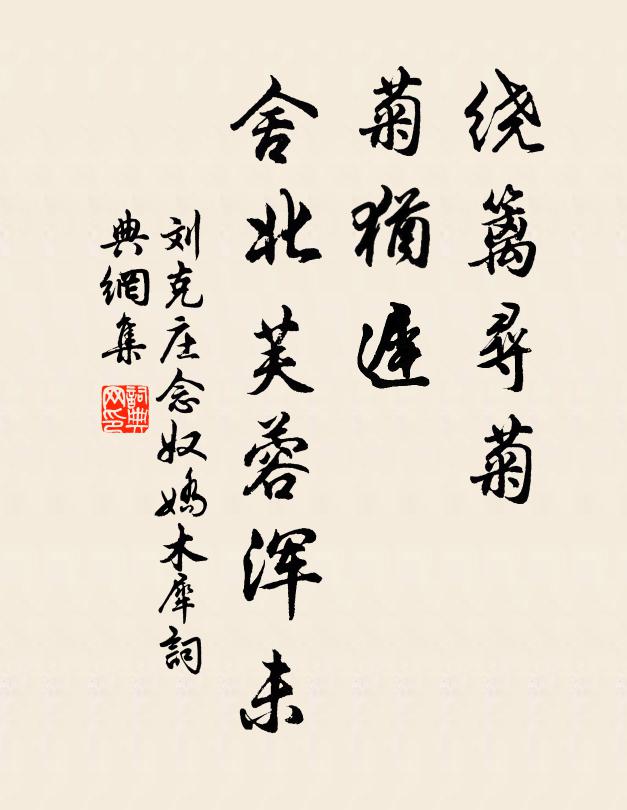 绕篱寻菊
菊犹迟
舍北芙蓉浑未
刘克庄念奴娇木犀詞
典網集
詞典
网印